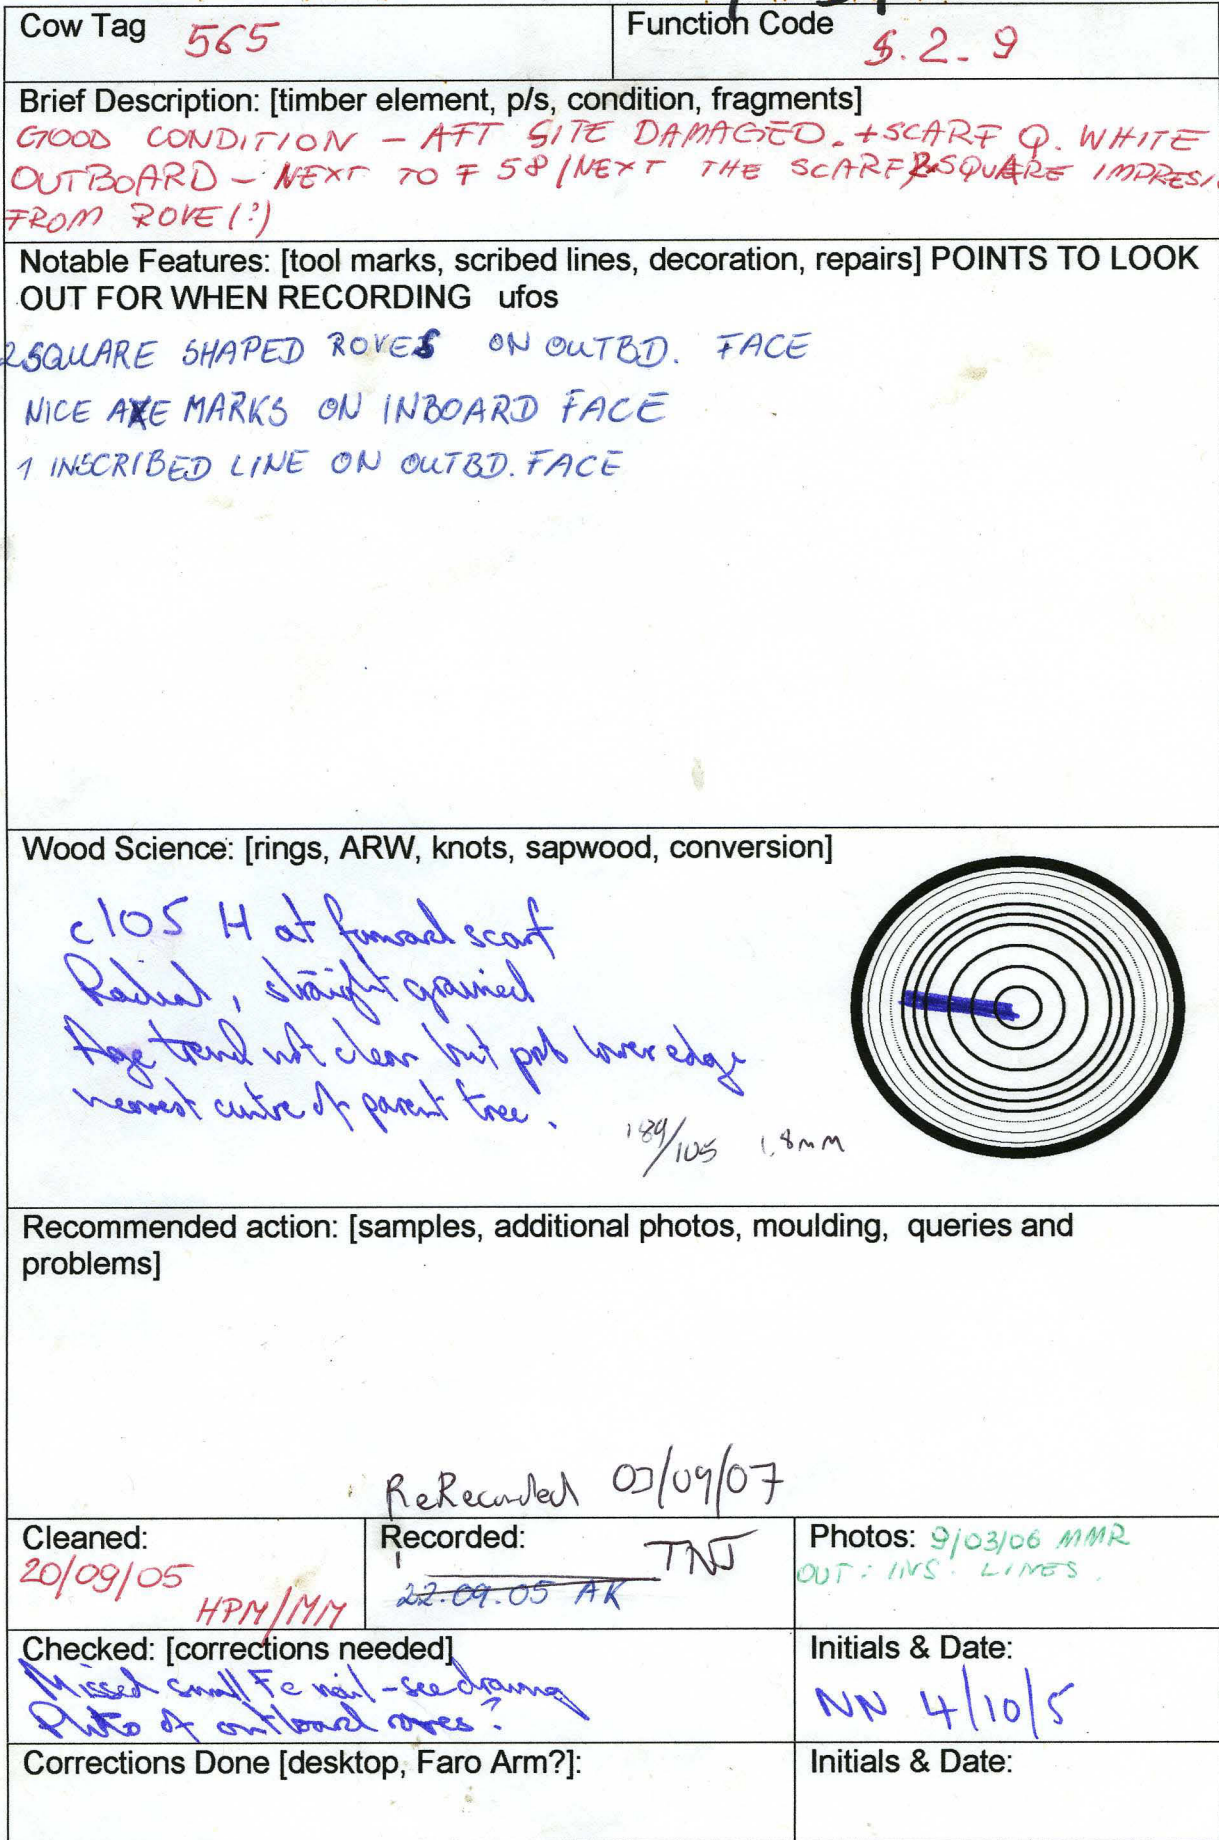 Cow Tag 565
Function Code S.2_9
Brief Description: [timber element, p/s, condition, fragments]
GOOD CONDITION - AFT SITE DAMAGED. + SCARF Q. WHITE
OUTBOARD - NEXT TO F 58 / NEXT THE SCARF, 2 SQUARE IMPRESI
FROM ROVE (?)
Notable Features: [tool marks, scribed lines, decoration, repairs] POINTS TO LOOK
OUT FOR WHEN RECORDING ufos
2 SQUARE SHAPED ROVES ON OUTBD. FACE
NICE AXE MARKS ON INBOARD FACE
1 INSCRIBED LINE ON OUTBD. FACE
Wood Science: [rings, ARW, knots, sapwood, conversion]
c105 H at forward scarf
Radial, straight grained
Age trend not clear but prob lower edge
nearest centre of parent tree.
189/105 1.8mm
Recommended action: [samples, additional photos, moulding, queries and
problems]
ReRecorded 03/09/07
Cleaned:
20/09/05
HPM/MM
Recorded:
TNJ
22.09.05 AK
Photos: 9/03/06 MMR
OUT: INS. LINES.
Checked: [corrections needed]
Missed small Fe nail - see drawing
Photo of outboard roves?
Initials & Date:
NN 4/10/5
Corrections Done [desktop, Faro Arm?]:
Initials & Date: